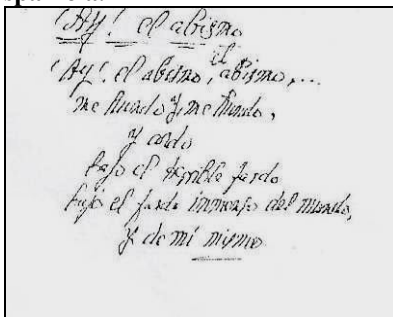 ¡AY! el abismo
¡Ay! el abismo, el abismo,...
me hundo y me hundo,
y ardo
bajo el terrible fardo
bajo el fardo inmenso del mundo,
y de mí mismo